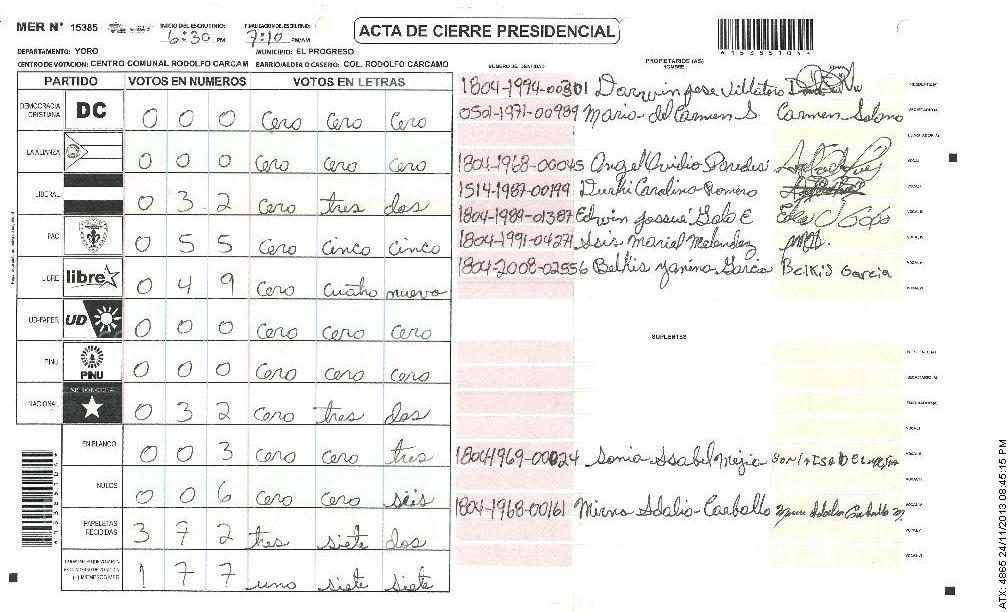 MER N° 15385
INICIO DEL ESCRUTINIO: 6:30 PM
FINALIZACION DEL ESCRUTINIO: 7:10 PM/AM
ACTA DE CIERRE PRESIDENCIAL
DEPARTAMENTO: YORO
MUNICIPIO: EL PROGRESO
CENTRO DE VOTACION: CENTRO COMUNAL RODOLFO CARCAM BARRIO/ALDEA O CASERIO: COL. RODOLFO CARCAMO
PARTIDO VOTOS EN NUMEROS VOTOS EN LETRAS
DEMOCRACIA CRISTIANA DC 0 0 0 Cero Cero Cero
LA ALIANZA 0 0 0 Cero Cero Cero
LIBERAL 0 3 2 Cero tres dos
PAC 0 5 5 Cero Cinco Cinco
LIBRE libre 0 4 9 Cero Cuatro nueve
UD-FAPER UD 0 0 0 Cero Cero Cero
PINU PINU 0 0 0 Cero Cero Cero
NACIONAL 0 3 2 Cero tres dos
EN BLANCO 0 0 3 Cero Cero tres
NULOS 0 0 6 Cero Cero séis
PAPELETAS RECIBIDAS 3 7 2 tres siete dos
(+) MIEMBROS MER 1 7 7 uno siete siete
NUMERO DE IDENTIDAD
PROPIETARIOS (AS)
NOMBRE
FIRMA
1804-1994-00301 Darwin Jose Villatoro
0501-1971-00989 Maria del Carmen S. Carmen Solono
1804-1968-00045 Angel Ovidio Paredes
1514-1987-00199 Durhi Carolina Romero
1804-1989-01387 Edwin Josue Galo E
1804-1991-04271 Isis Mariel Melendez
1804-2008-02556 Belkis Yanina Garcia BELKIS Garcia
SUPLENTES
18041969-00024 Sonia Isabel Mejia
1804-1968-00161 Mirna Idalia Carballo
ATX: 4865 24/11/2013 08:45:15 PM